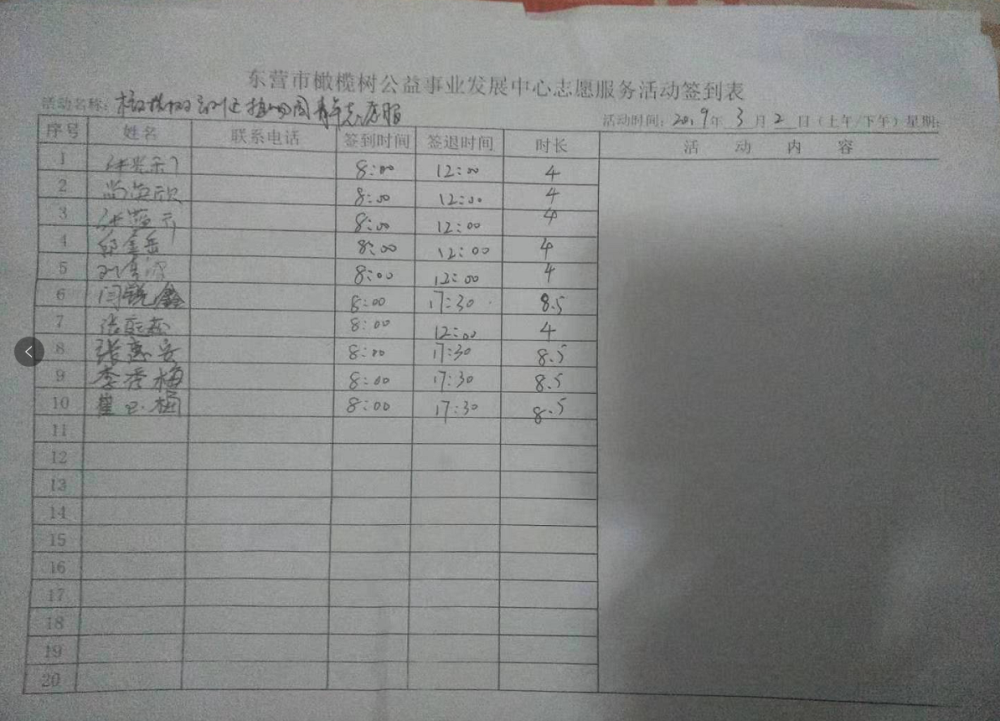 东营市橄榄树公益事业发展中心志愿服务活动签到表
活动名称: 植物园青年志愿服
活动时间: 2019年 3月 2日(上午/下午)星期:
序号 姓名 联系电话 签到时间 签退时间 时长 活动内容
1 8:00 12:00 4
2 8:00 12:00 4
3 8:00 12:00 4
4 8:00 12:00 4
5 8:00 12:00 4
6 闫锐鑫 8:00 17:30 8.5
7 8:00 12:00 4
8 张惠安 8:00 17:30 8.5
9 李秀梅 8:00 17:30 8.5
10 8:00 17:30 8.5
11
12
13
14
15
16
17
18
19
20